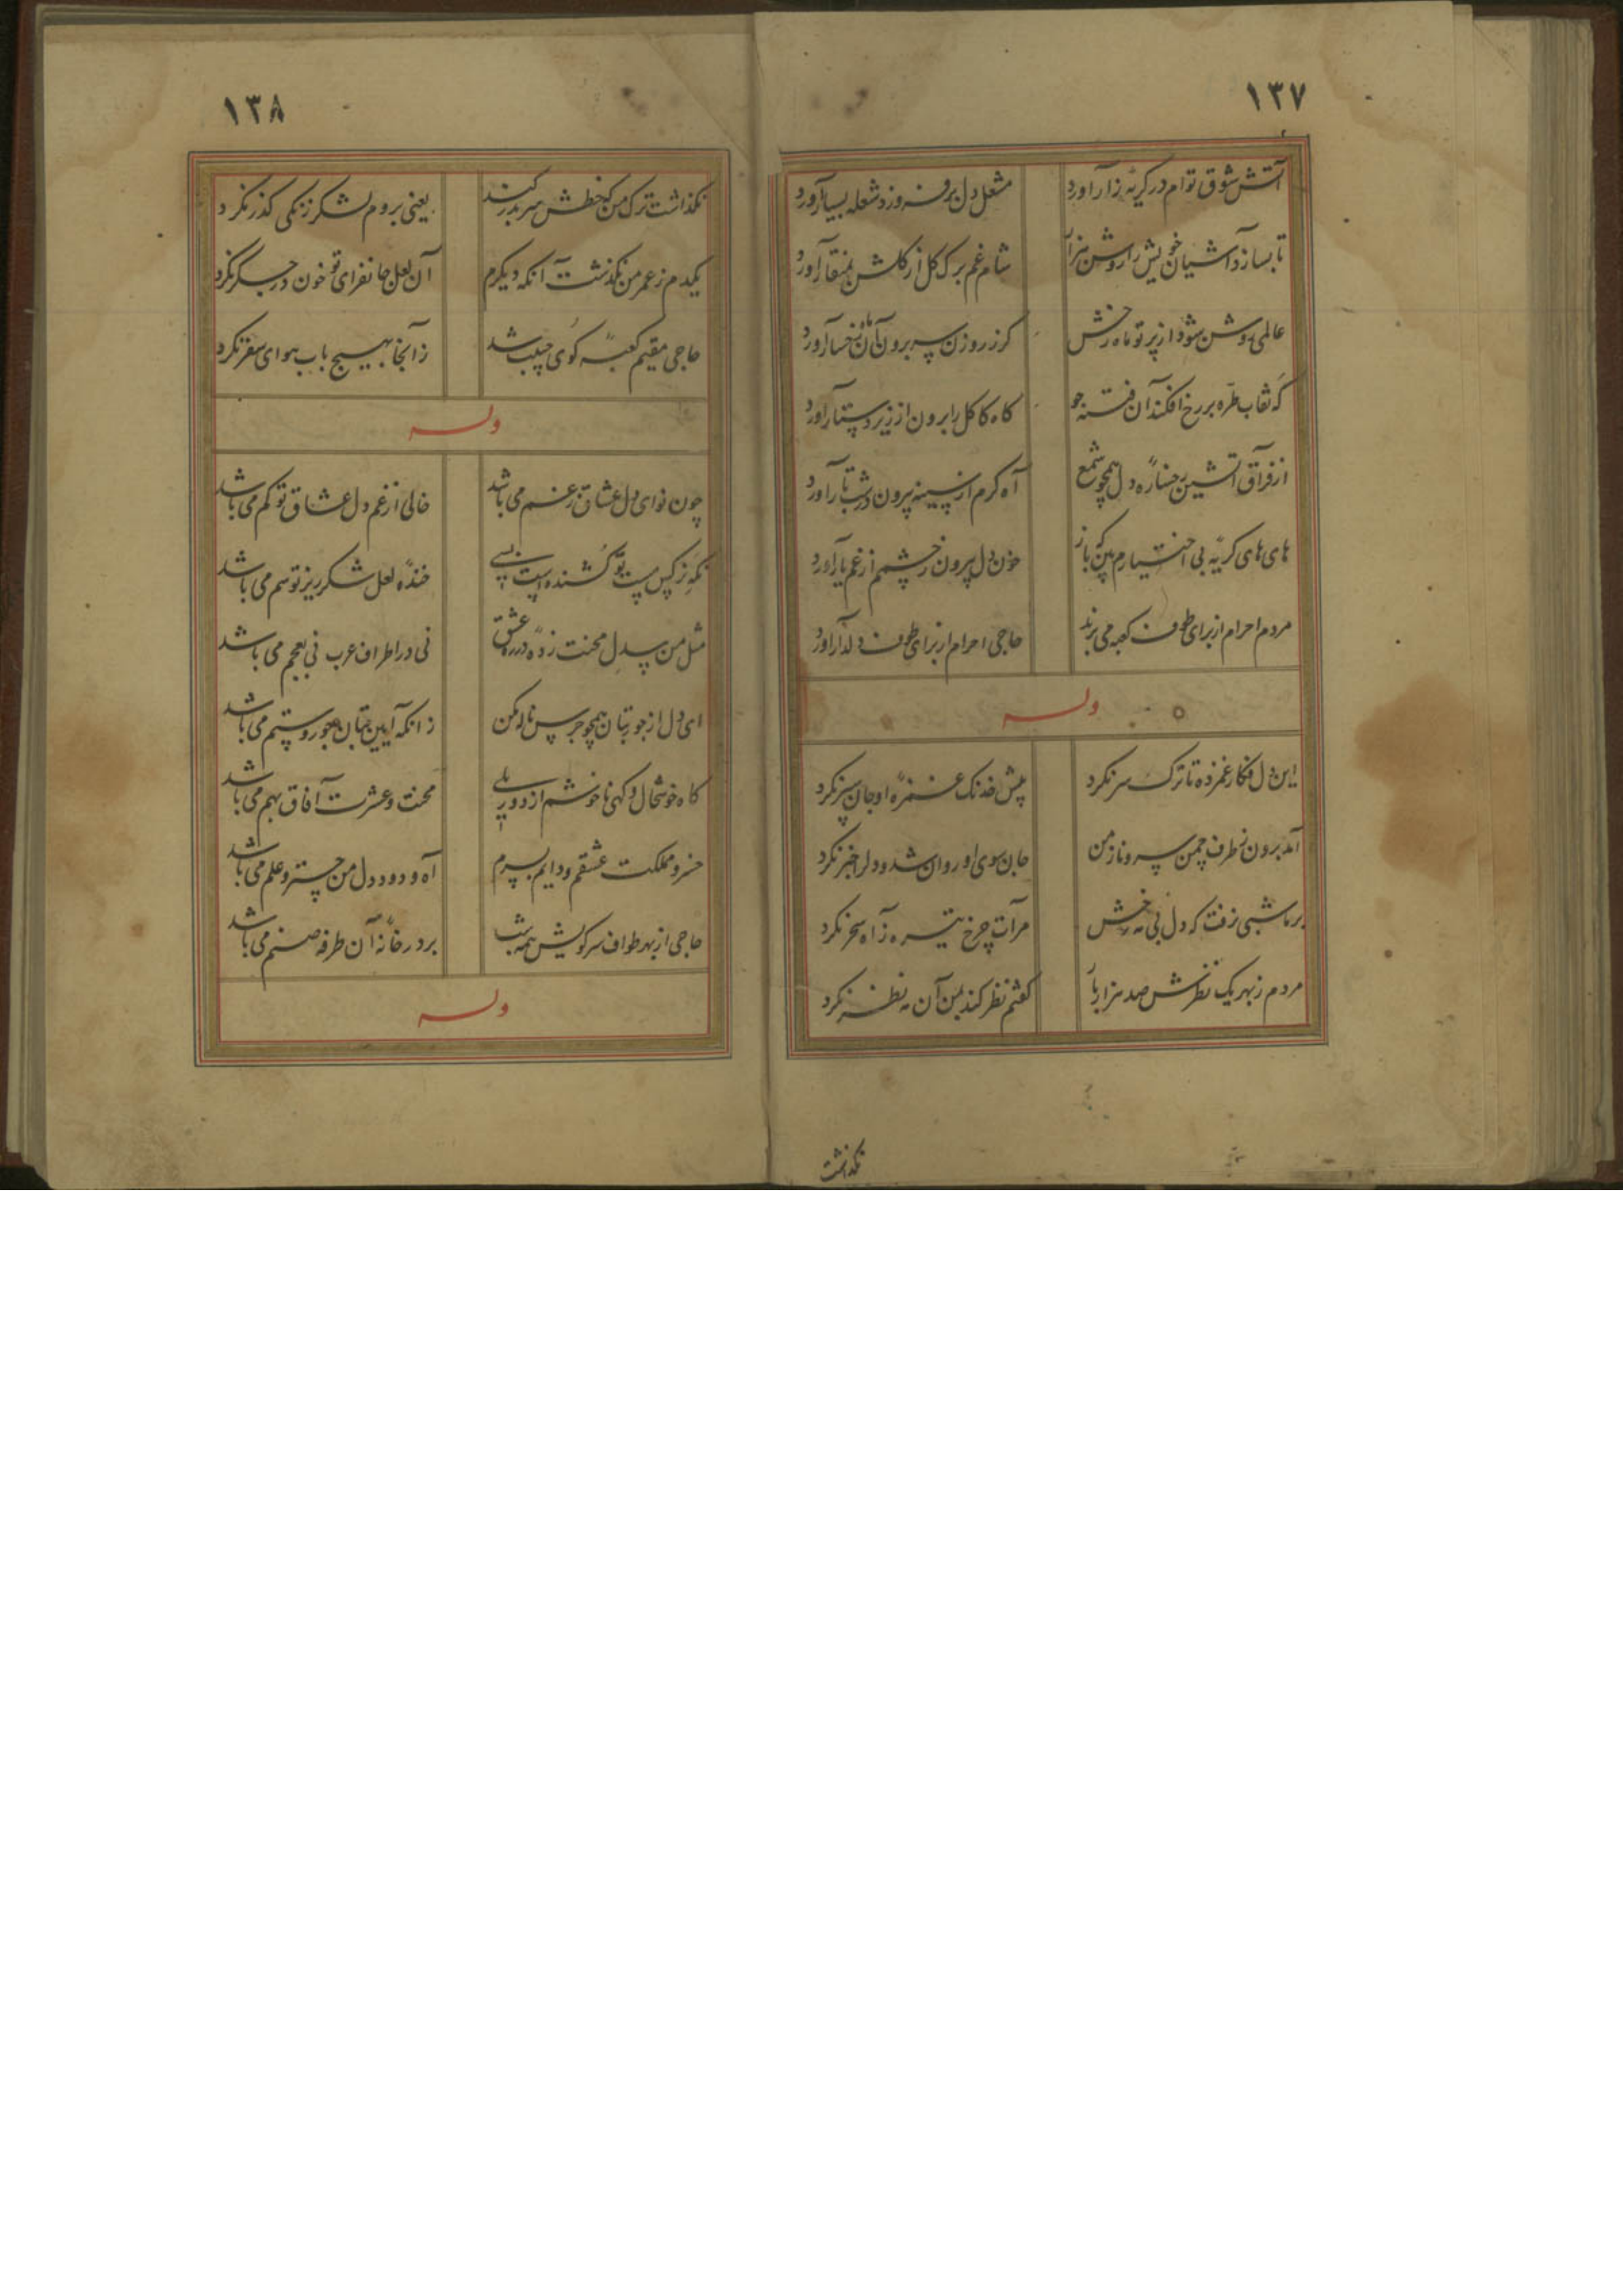 ۱۳۷
آتش شوق توام در گریهٔ زار آورد
مشعل دل برفروزد شعله بسیار آورد
تا بسازد آشیان خویش را روشن هزار
شام غم برک کل از کلشن بمنقار آورد
عالمی روشن شود از پرتو ماه رخش
کر ز روزن سر برون آن ماه رخسار آورد
که نقاب طرّه بر رخ افکند آن فتنه جو
کاه کاکل را برون از زیر دستار آورد
از فراق آتشین رخسارهٔ دل همچو شمع
آه کرم از سینه بیرون در شب تار آورد
های های کریهٔ بی اختیارم بین که باز
خون دل بیرون ز چشمم از غم یار آورد
مردم احرام از برای طوف کعبه می برند
حاجی احرام از برای طوف دلدار آورد
وله
این دل فکار غمزده تا ترک سر نکرد
پیش خدنک غمزهٔ او جان سپر نکرد
آمد برون ز طرف چمن سرو ناز من
جان سوی او روان شد و دل را خبر نکرد
بر ما شبی نرفت که دل بی مه رخش
مرآت چرخ تیره ز آه سحر نکرد
مردم ز بهر یک نظرش صد هزار بار
کفتم نظر کند بمن آن مه نظر نکرد
نکذاشت
۱۳۸
نکذاشت ترک من که خطش سر بدر کند
یعنی بروم لشکر زنکی کذر نکرد
یکدم ز عمر من نکذشت آنکه دیکرم
آن لعل جانفزای تو خون در جکر نکرد
حاجی مقیم کعبهٔ کوی حبیب شد
زآنجا بهیچ باب هوای سفر نکرد
وله
چون نوای دل عشاق ز غم می باشد
خالی از غم دل عشاق تو کم می باشد
نکه نرکس مست تو کشنده است بسی
خندهٔ لعل شکرریز تو سم می باشد
مثل من بیدل محنت زدهٔ در ره عشق
نی در اطراف عرب نی بعجم می باشد
ای دل از جور بتان همچو جرس ناله مکن
زانکه آیین بتان جور و ستم می باشد
کاه خوشحال و کهی ناخوشم از دور بلی
محنت و عشرت آفاق بهم می باشد
خسرو مملکت عشقم و دایم بسرم
آه و دود دل من چتر و علم می باشد
حاجی از بهر طواف سر کویش همه شب
بر در خانهٔ آن طرفه صنم می باشد
وله